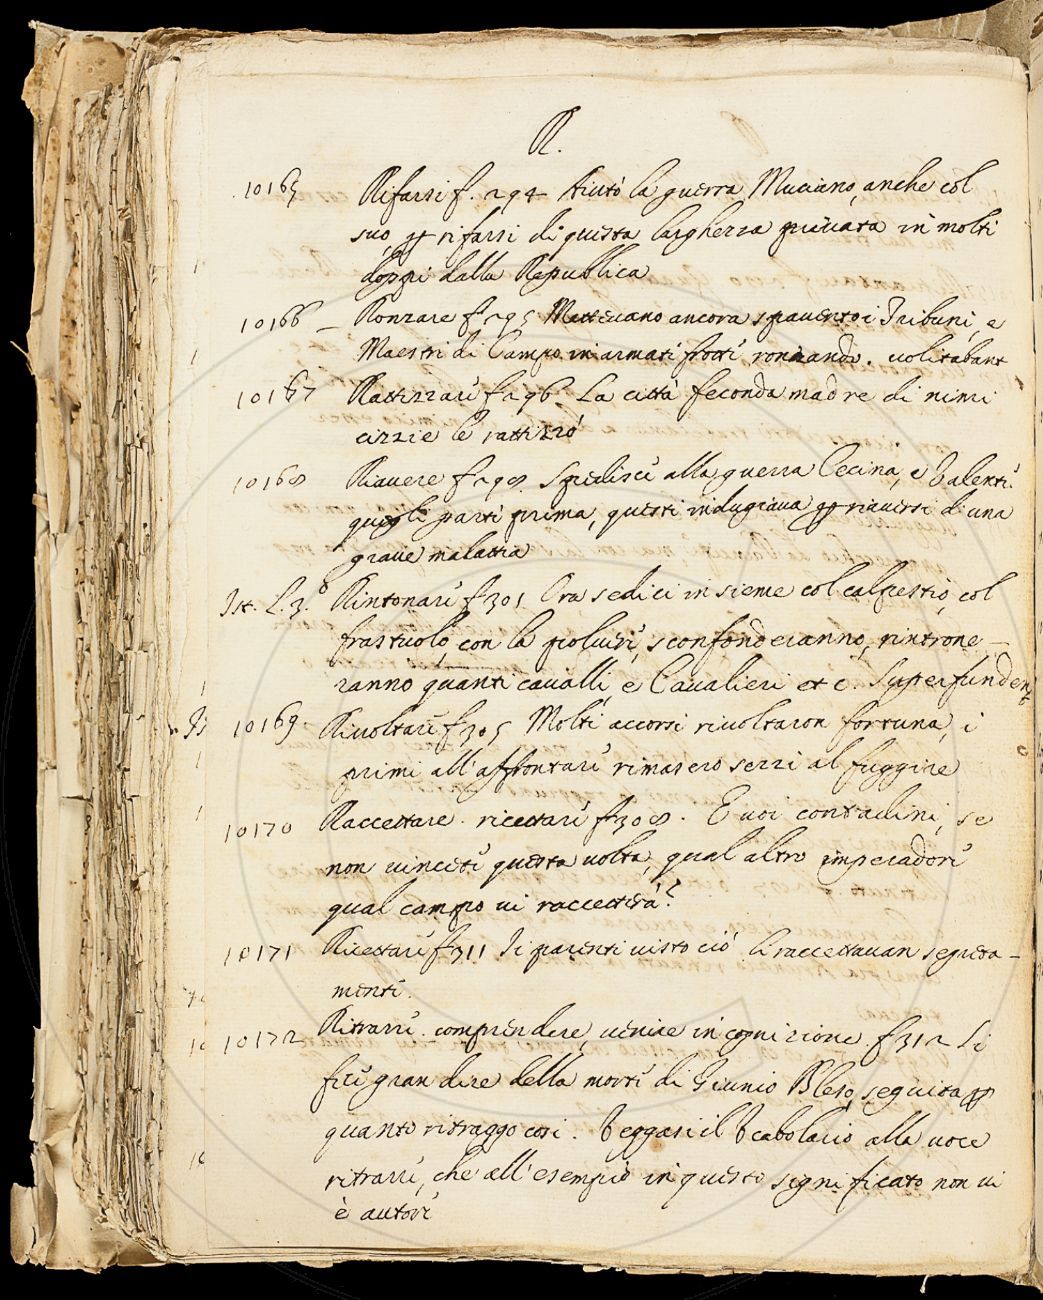 R.
10165 Rifarsi f. 294 Aiutò la guerra Muciano, anche col
suo, p rifarsi di questa larghezza privata in molti
doppi dalla Republica
10166 Ronzare f 295 Mettevano ancora spavento i Tribuni, e
Maestri di Campo in armati frotti ronzando. volitabant
10167 Rattizzare f 296 La città feconda madre di nimi
cizzie le rattizzò
10168 Riavere f 298 Spedisce alla guerra Cecina, e Valente
quegli parti prima, questi indugiava p riaversi d'una
grave malattia
Ist. L. 3.º Rintonare f 301 Ora sedici insieme col calpestio, col
frastuolo, con la polvere, sconfonderanno, rintrone-
ranno quanti cavalli, e Cavalieri etc. Superfundent
10169 Rivoltare f 305 Molti accorsi rivoltaron fortuna, i
primi all'affrontare rimasero serzi al fuggire
10170 Raccettare. ricettare f 308. E voi contadini, se
non vincete questa volta, qual altro imperadore
qual campo vi raccetterà?
10171 Ricettare f 311 I parenti visto ciò lo raccettavan segreta-
mente.
10172 Ritrarre. comprendere, venire in cognizione f 312 Si
fece gran dire della morte di Giunio Bleso, seguita p
quanto ritraggo così. Veggasi il Vocabolario alla voce
ritrarre, che all'esempio in questo significato non vi
è autore